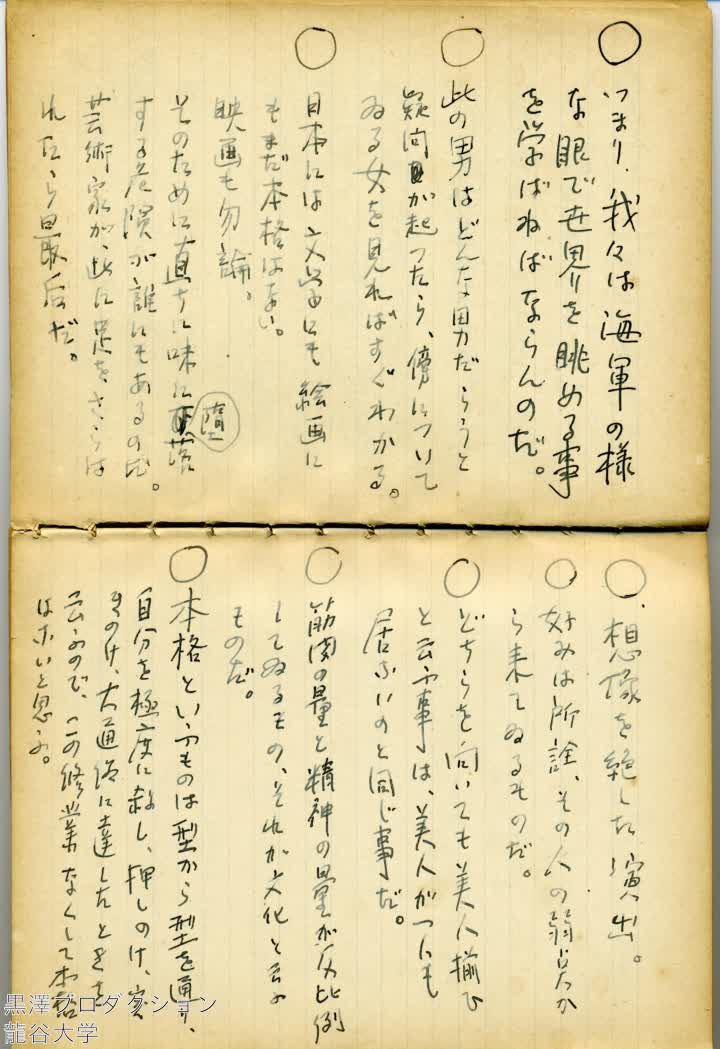 ○
つまり、我々は海軍の様
な眼で世界を眺める事
を学ばねばならんのだ。
○
此の男はどんな男だらうと
疑問が起つたら、傍について
ゐる女を見ればすぐわかる。
○
日本には文学にも絵画に
もまだ本格はない。
映画も勿論。
そのために直ちに味に堕落
堕
する危険が誰にもあるのだ。
芸術家が此に足をさらは
れたら最后だ。
○
想像を絶した演出。
○
好みは所詮、その人の弱点か
ら来てゐるものだ。
○
どちらを向いても美人揃ひ
と云ふ事は、美人が一人も
居ないのと同じ事だ。
○
筋肉の量と精神の量が反比例
してゐるもの、それが文化と云ふ
ものだ。
○
本格といふものは型から型を通り、
自分を極度に殺し、押しのけ、突
きのけ、大通俗に達したときを
云ふので、この修業なくして本格
はないと思ふ。
黒澤プロダクション
龍谷大学